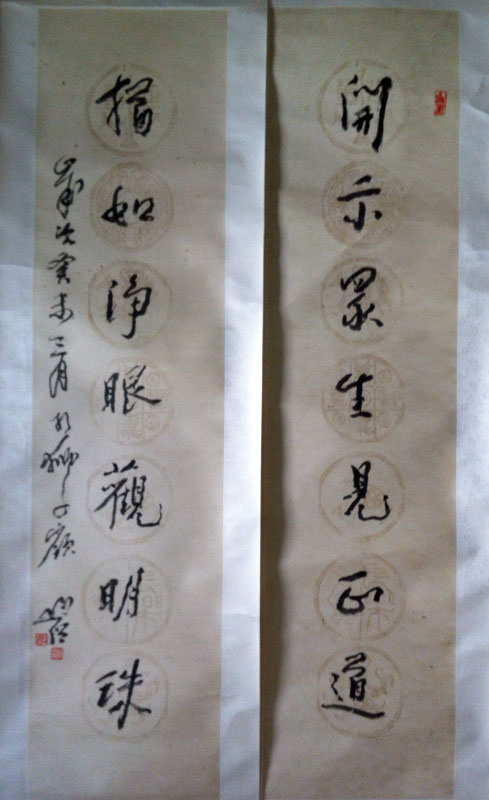 開示眾生見正道
猶如淨眼觀明珠
歲次癸未三月於獅子嶺